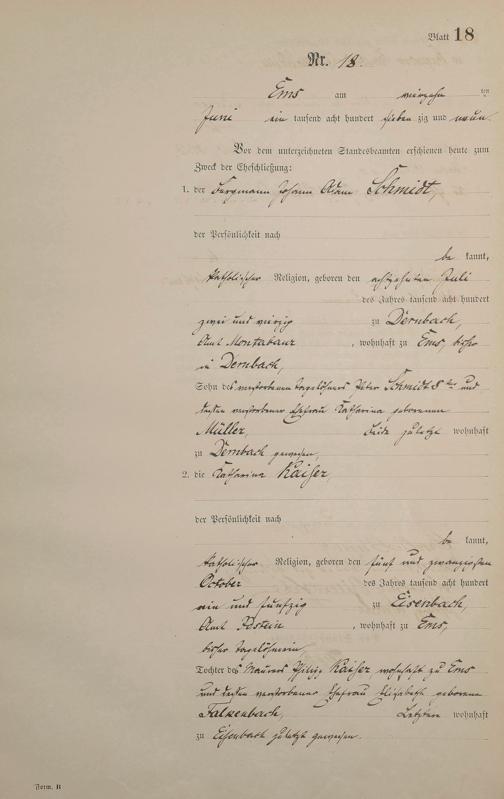 Blatt 18
Nr. 18.
Ems am vierzehn ten
Juni ein tausend acht hundert sieben zig und neun.
Vor dem unterzeichneten Standesbeamten erschienen heute zum
Zweck der Eheschließung:
1. der Bergmann Johann Adam Schmidt,
der Persönlichkeit nach
be kannt,
katholischer Religion, geboren den achtzehnten Juli
des Jahres tausend acht hundert
zwei und vierzig zu Dernbach,
Amt Montabaur, wohnhaft zu Ems, bisher
in Dernbach,
Sohn des verstorbenen Tagelöhners Peter Schmidt 8ter und
dessen verstorbener Ehefrau Katharina geborenen
Müller, beide zuletzt wohnhaft
zu Dernbach gewesen,
2. die Katharina Kaiser,
der Persönlichkeit nach
be kannt,
katholischer Religion, geboren den fünf und zwanzigsten
October des Jahres tausend acht hundert
ein und fünfzig zu Eisenbach,
Amt Idstein, wohnhaft zu Ems,
bisher Tagelöhnerin,
Tochter des Maurers Philipp Kaiser, wohnhaft zu Ems
und dessen verstorbener Ehefrau Elisabeth geborene
Falkenbach, Letztere wohnhaft
zu Eisenbach zuletzt gewesen.
Form. B